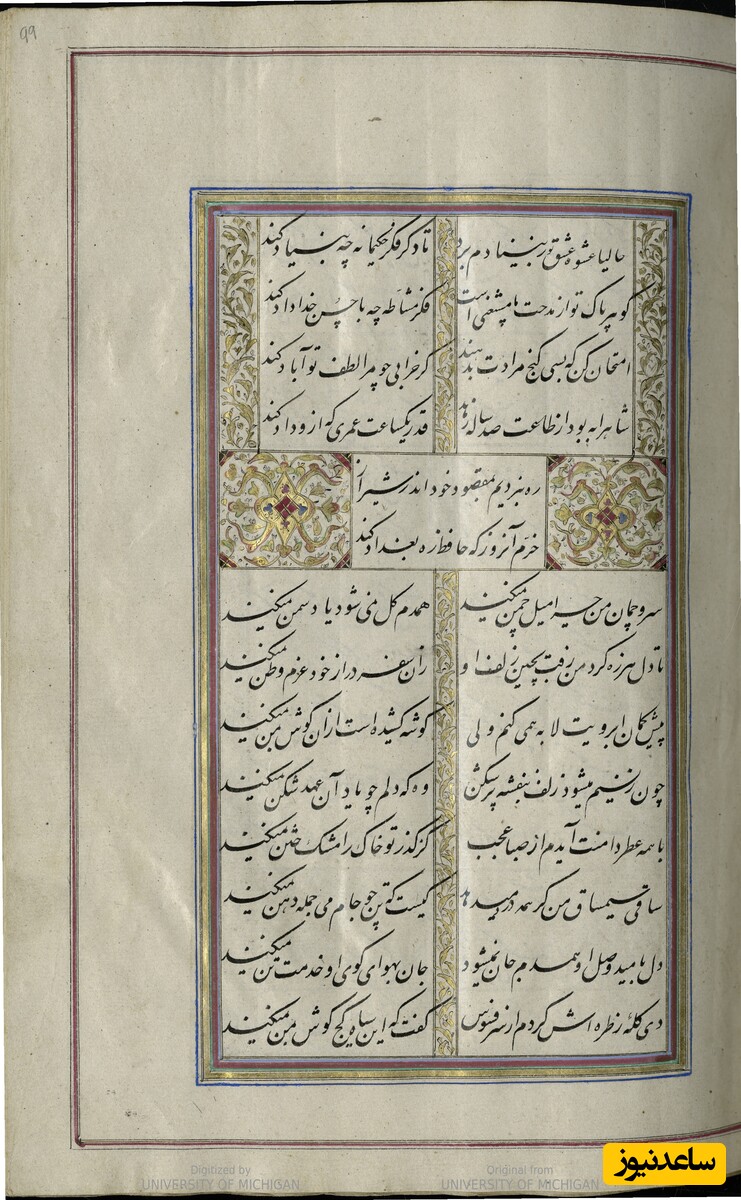 99
حالیا عشوه عشق تو ز بنیادم برد تا دگر فکر حکیمانه چه بنیاد کند
گوهر پاک تو از مدحت ما مستغنی است فکر مشاطه چه با حسن خداداد کند
امتحان کن که بسی گنج مرادت بدهند گر خرابی چو مرا لطف تو آباد کند
شاه را به بود از طاعت صد ساله زهد قدر یکساعت عمری که ازو داد کند
ره نبردیم بمقصود خود اندر شیراز
خرم آنروز که حافظ ره بغداد کند
سرو چمان من چرا میل چمن نمیکند همدم گل نمی شود یاد سمن نمیکند
تا دل هرزه گرد من رفت بچین زلف او زان سفر دراز خود عزم وطن نمیکند
پیش کمان ابرویت لابه همی کنم ولی گوشه کشیده است از آن گوش بمن نمیکند
چون ز نسیم میشود زلف بنفشه پرشکن وه که دلم چو یاد آن عهد شکن نمیکند
با همه عطر دامنت آیدم از صبا عجب کز گذر تو خاک را مشک ختن نمیکند
ساقی سیمساق من گر همه درد میدهد کیست که تن چو جام می جمله دهن نمیکند
دل بامید وصل او همدم جان نمیشود جان بهوای کوی او خدمت تن نمیکند
دی گله ز طره اش کردم از سر فسوس گفت که این سیاه کج گوش بمن نمیکند
Digitized by
UNIVERSITY OF MICHIGAN
Original from
UNIVERSITY OF MICHIGAN
ساعدنیوز